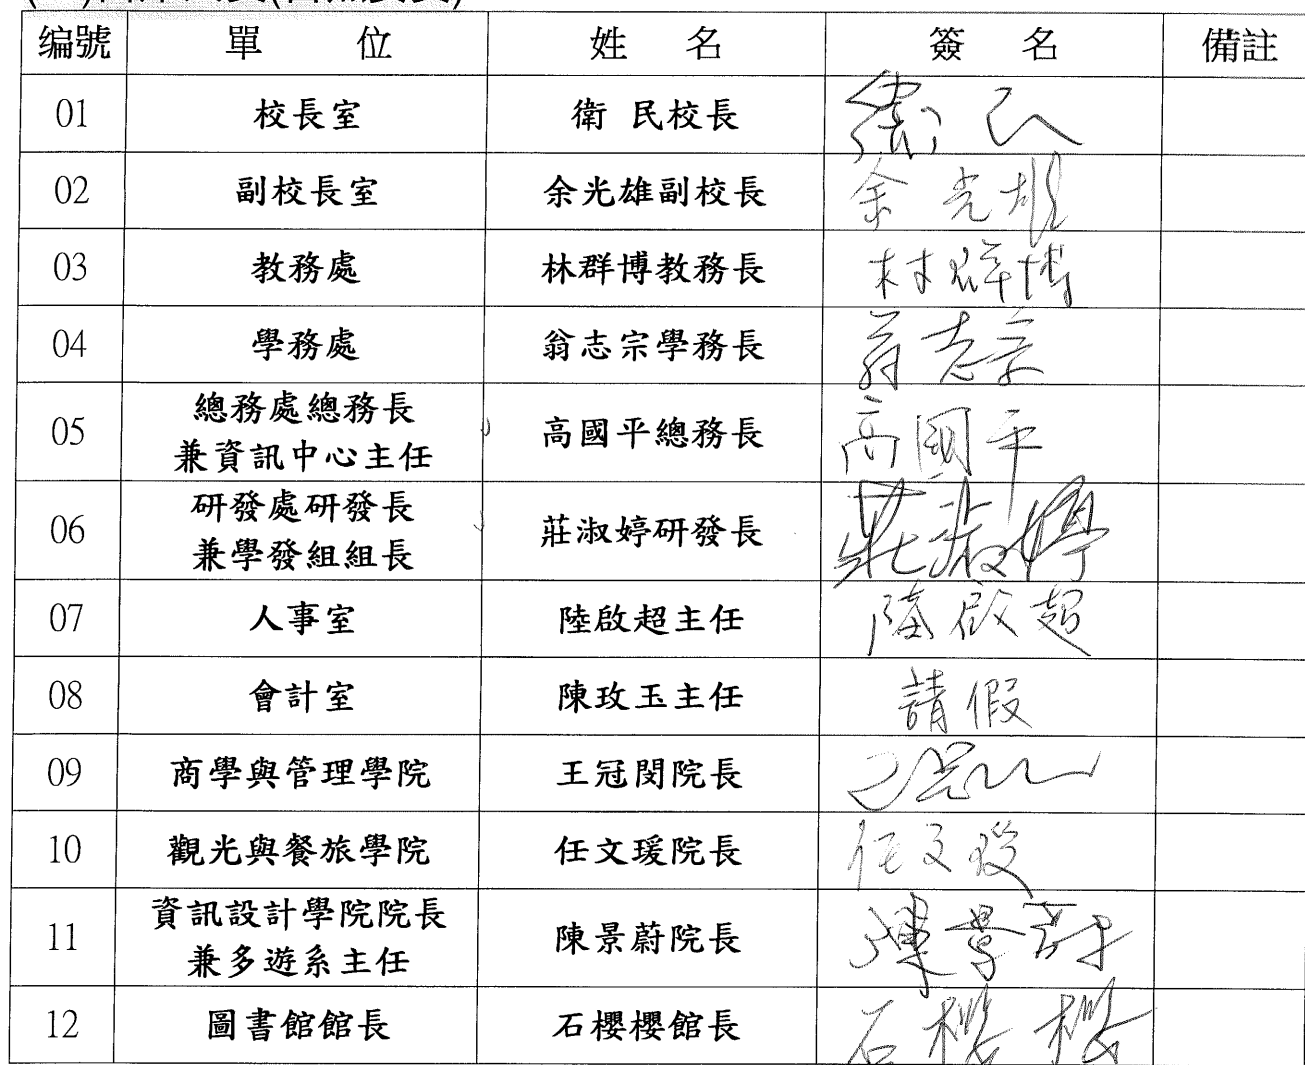 编號 單 位 姓 名 簽 名 備註
01 校長室 衛 民校長 衛民
02 副校長室 余光雄副校長 余光雄
03 教務處 林群博教務長 林群博
04 學務處 翁志宗學務長 翁志宗
05 總務處總務長 高國平總務長 高國平
兼資訊中心主任
06 研發處研發長 莊淑婷研發長 莊淑婷
兼學發組組長
07 人事室 陸啟超主任 陸啟超
08 會計室 陳玫玉主任 請假
09 商學與管理學院 王冠閔院長
10 觀光與餐旅學院 任文瑗院長 任文瑗
11 資訊設計學院院長 陳景蔚院長 陳景蔚
兼多遊系主任
12 圖書館館長 石櫻櫻館長 石櫻櫻